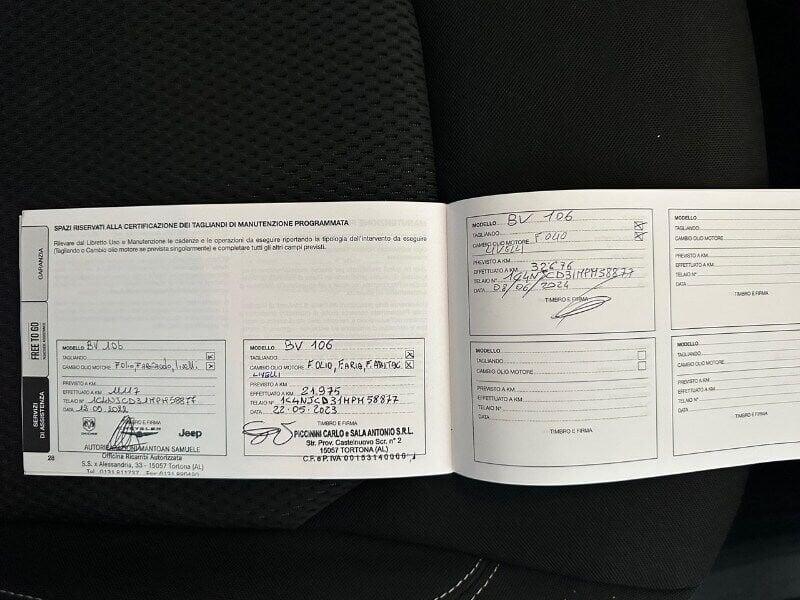 SPAZI RISERVATI ALLA CERTIFICAZIONE DEI TAGLIANDI DI MANUTENZIONE PROGRAMMATA
Rilevare dal Libretto Uso e Manutenzione le cadenze e le operazioni da eseguire riportando la tipologia dell'intervento da eseguire
(Tagliando e Cambio olio motore se prevista singolarmente) e completare tutti gli altri campi previsti.
GARANZIA
FREE TO GO
SERVIZI
DI ASSISTENZA
MODELLO BV 106
TAGLIANDO
CAMBIO OLIO MOTORE F.olio, F.abitacolo, livelli.
PREVISTO A KM
EFFETTUATO A KM 11117
TELAIO N° 1C4NJCD31MPM58877
DATA 13.05.2022
TIMBRO E FIRMA
Jeep
AUTORIPARAZIONI MANTOAN SAMUELE
Officina Ricambi Autorizzata
S.S. x Alessandria, 33 - 15057 Tortona (AL)
28
MODELLO BV 106
TAGLIANDO
CAMBIO OLIO MOTORE F.OLIO, F.ARIA, F.ABITAC.
LIVELLI
PREVISTO A KM
EFFETTUATO A KM 21.975
TELAIO N° 1C4NJCD31MPM58877
DATA 22.05.2023
TIMBRO E FIRMA
PICCININI CARLO e SALA ANTONIO S.R.L.
Str. Prov. Castelnuovo Scr. n° 2
15057 TORTONA (AL)
C.F. e P. IVA 00153140060
MODELLO BV 106
TAGLIANDO
CAMBIO OLIO MOTORE F OLIO
LIVELLI
PREVISTO A KM
EFFETTUATO A KM 32676
TELAIO N° 1C4NJCD31MPM58877
DATA 08/06/2024
TIMBRO E FIRMA
MODELLO
TAGLIANDO
CAMBIO OLIO MOTORE
PREVISTO A KM
EFFETTUATO A KM
TELAIO N°
DATA
TIMBRO E FIRMA
MODELLO
TAGLIANDO
CAMBIO OLIO MOTORE
PREVISTO A KM
EFFETTUATO A KM
TELAIO N°
DATA
TIMBRO E FIRMA
MODELLO
TAGLIANDO
CAMBIO OLIO MOTORE
PREVISTO A KM
EFFETTUATO A KM
TELAIO N°
DATA
TIMBRO E FIRMA